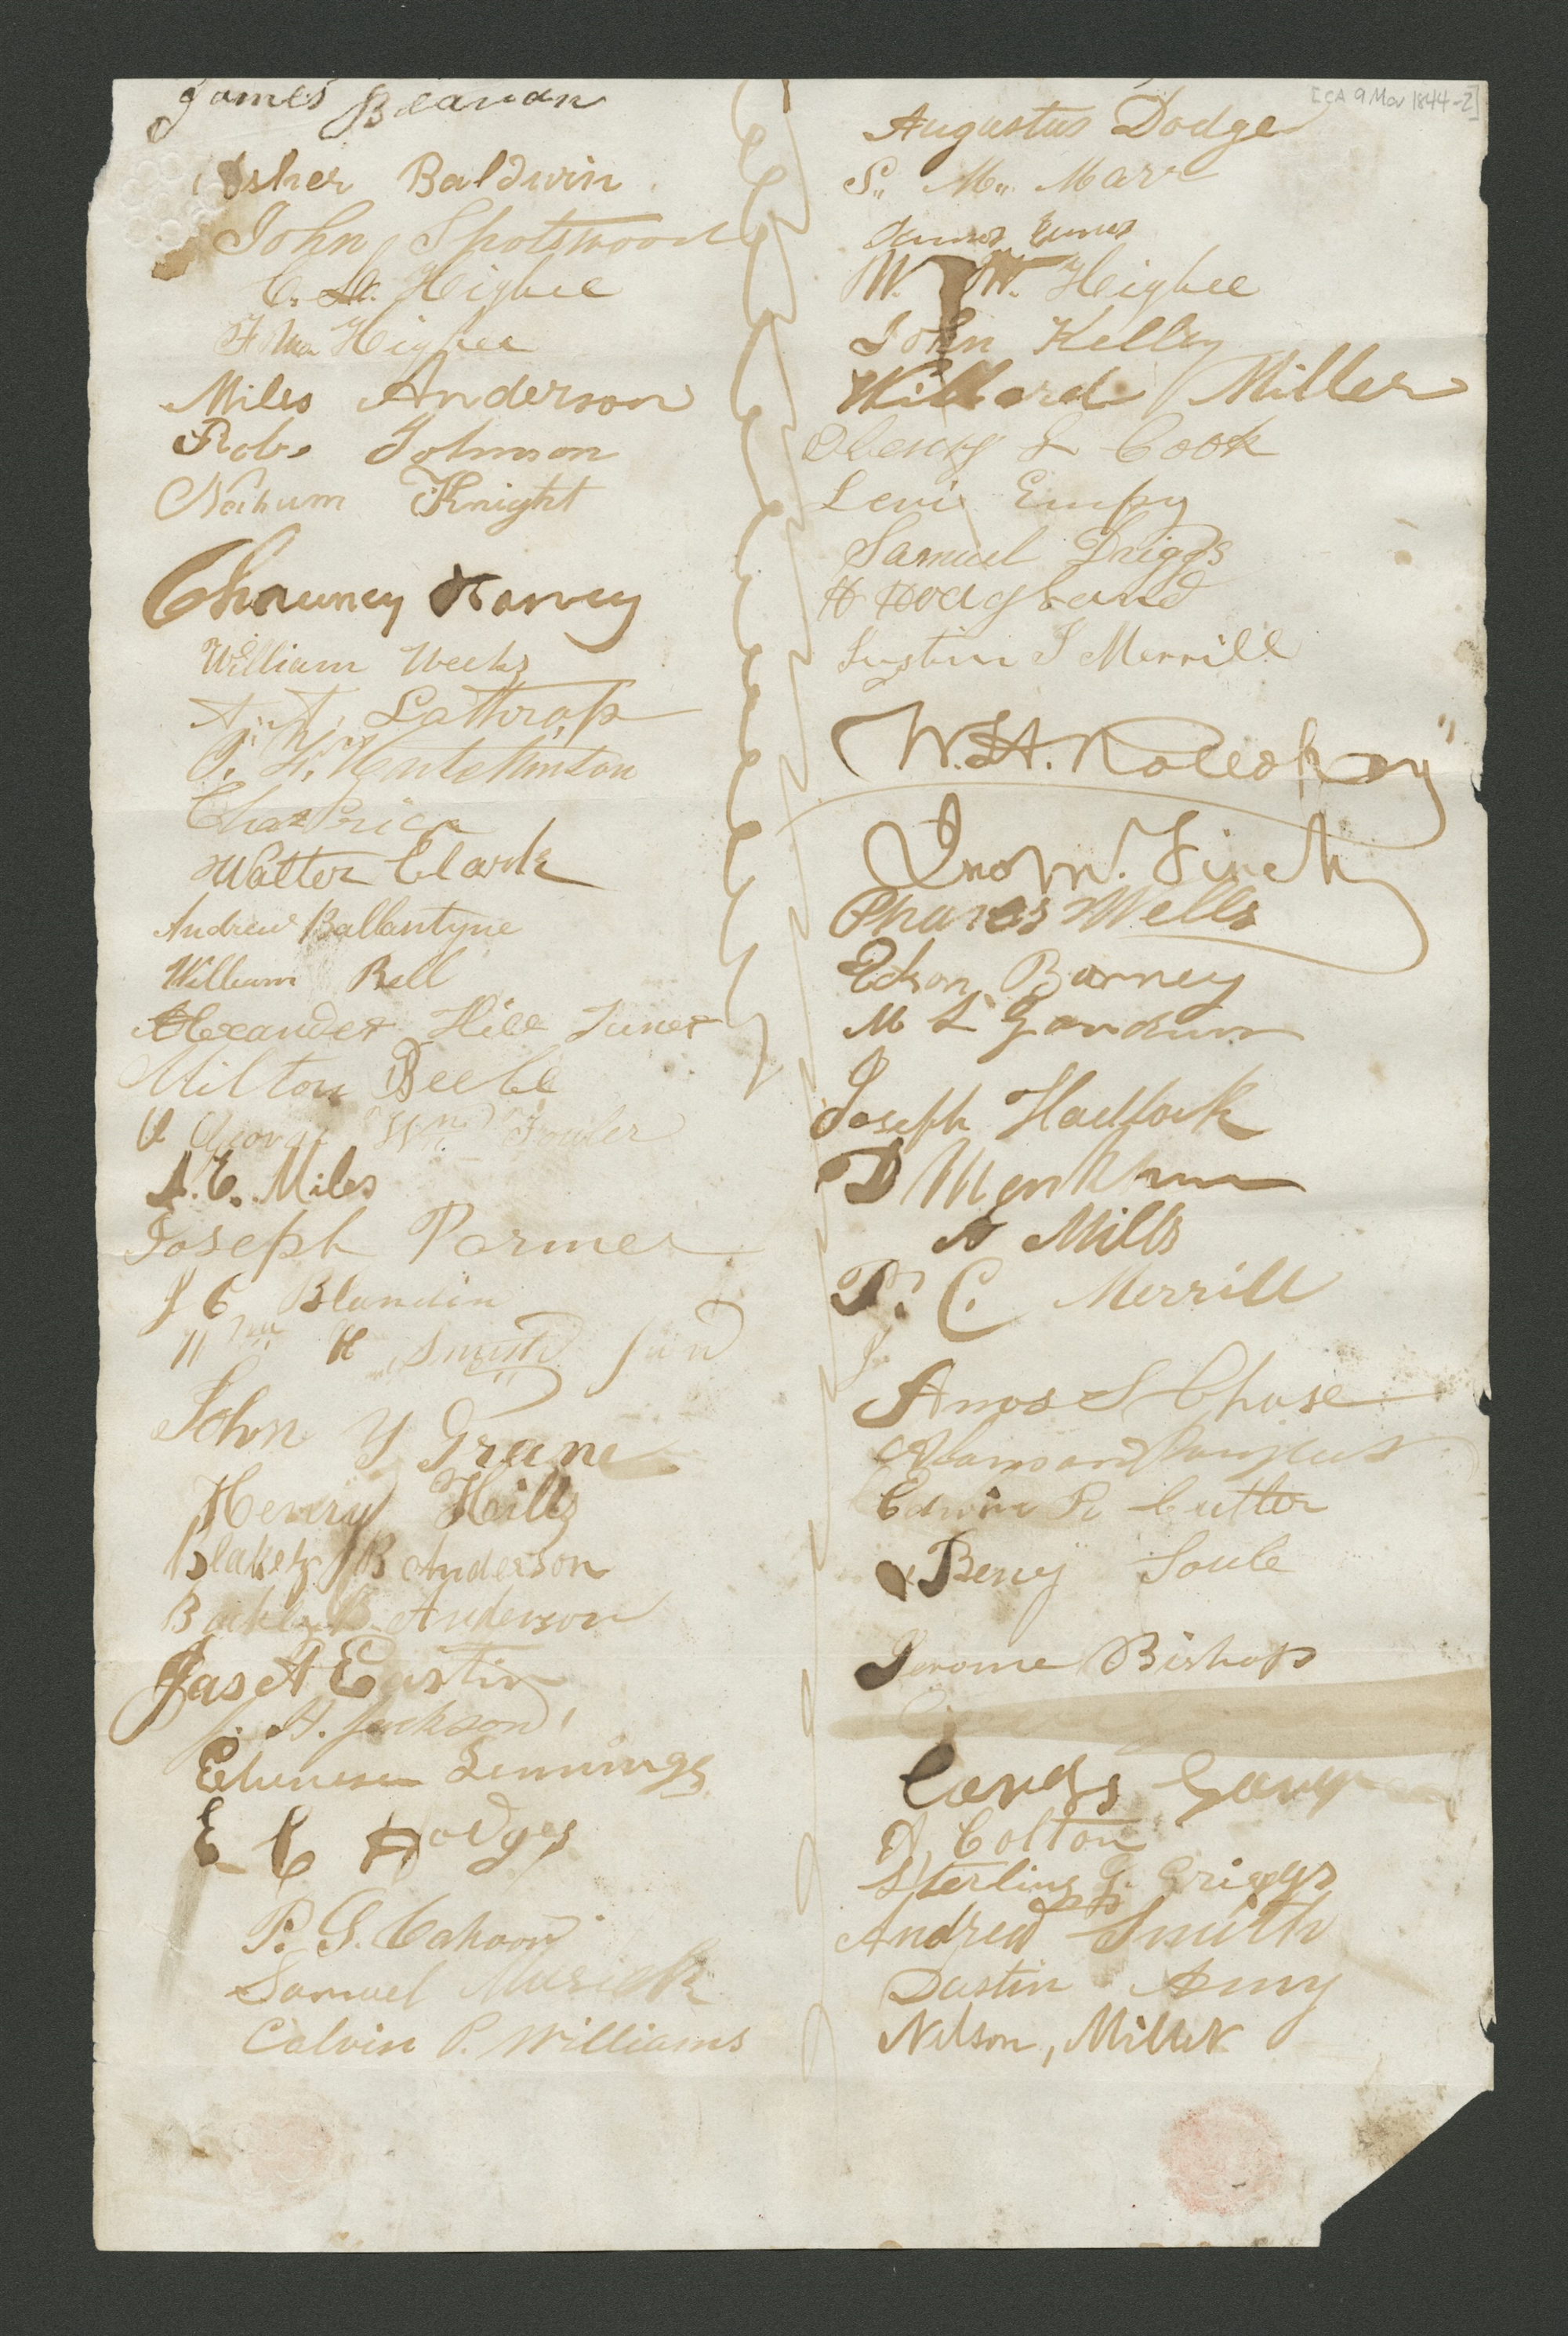 James Beavan
Asher Baldwin
John Spotswood
C. L. Higbee
Higbee
Miles Anderson
Robt Johnson
Nahum Knight
Chauncy Harvey
William Weeks
A. A. Lathrop
Chas Price
Walter Clark
Andrew Ballantyne
William Bell
Alexander Hill Juner
Milton Beebe
George Wm. Fowler
A. E. Miles
Joseph Parmer
J C Blandin
Wm H Smith
John Y Green
Henry Hills
Blakely B Anderson
B Anderson
Jas A Eastin
H. Jackson
Ebenezer Jennings
E C Hodges
P. G. Cahoon
Samuel Musick
Calvin P. Williams
[CA 9 Mar 1844-2]
Augustus Dodge
S,, M,, Marr
W. W. Higbee
John Kelley
Willard Miller
Henry L Cook
Levi Empy
Samuel Driggs
H Hoagland
Justin J Merrill
W. H. Rollosson
Jno M. Finch
Phares Wells
Edson Barney
M L
Joseph Hadlock
D Markham
A Mills
P. C. Merrill
Amos S Chase
Edwin R Cutler
Benj Soule
Jerome Bishop
A, Colton
Sterling G. Driggs
Andrew Smith
Dustin Amy
Nelson, Miller